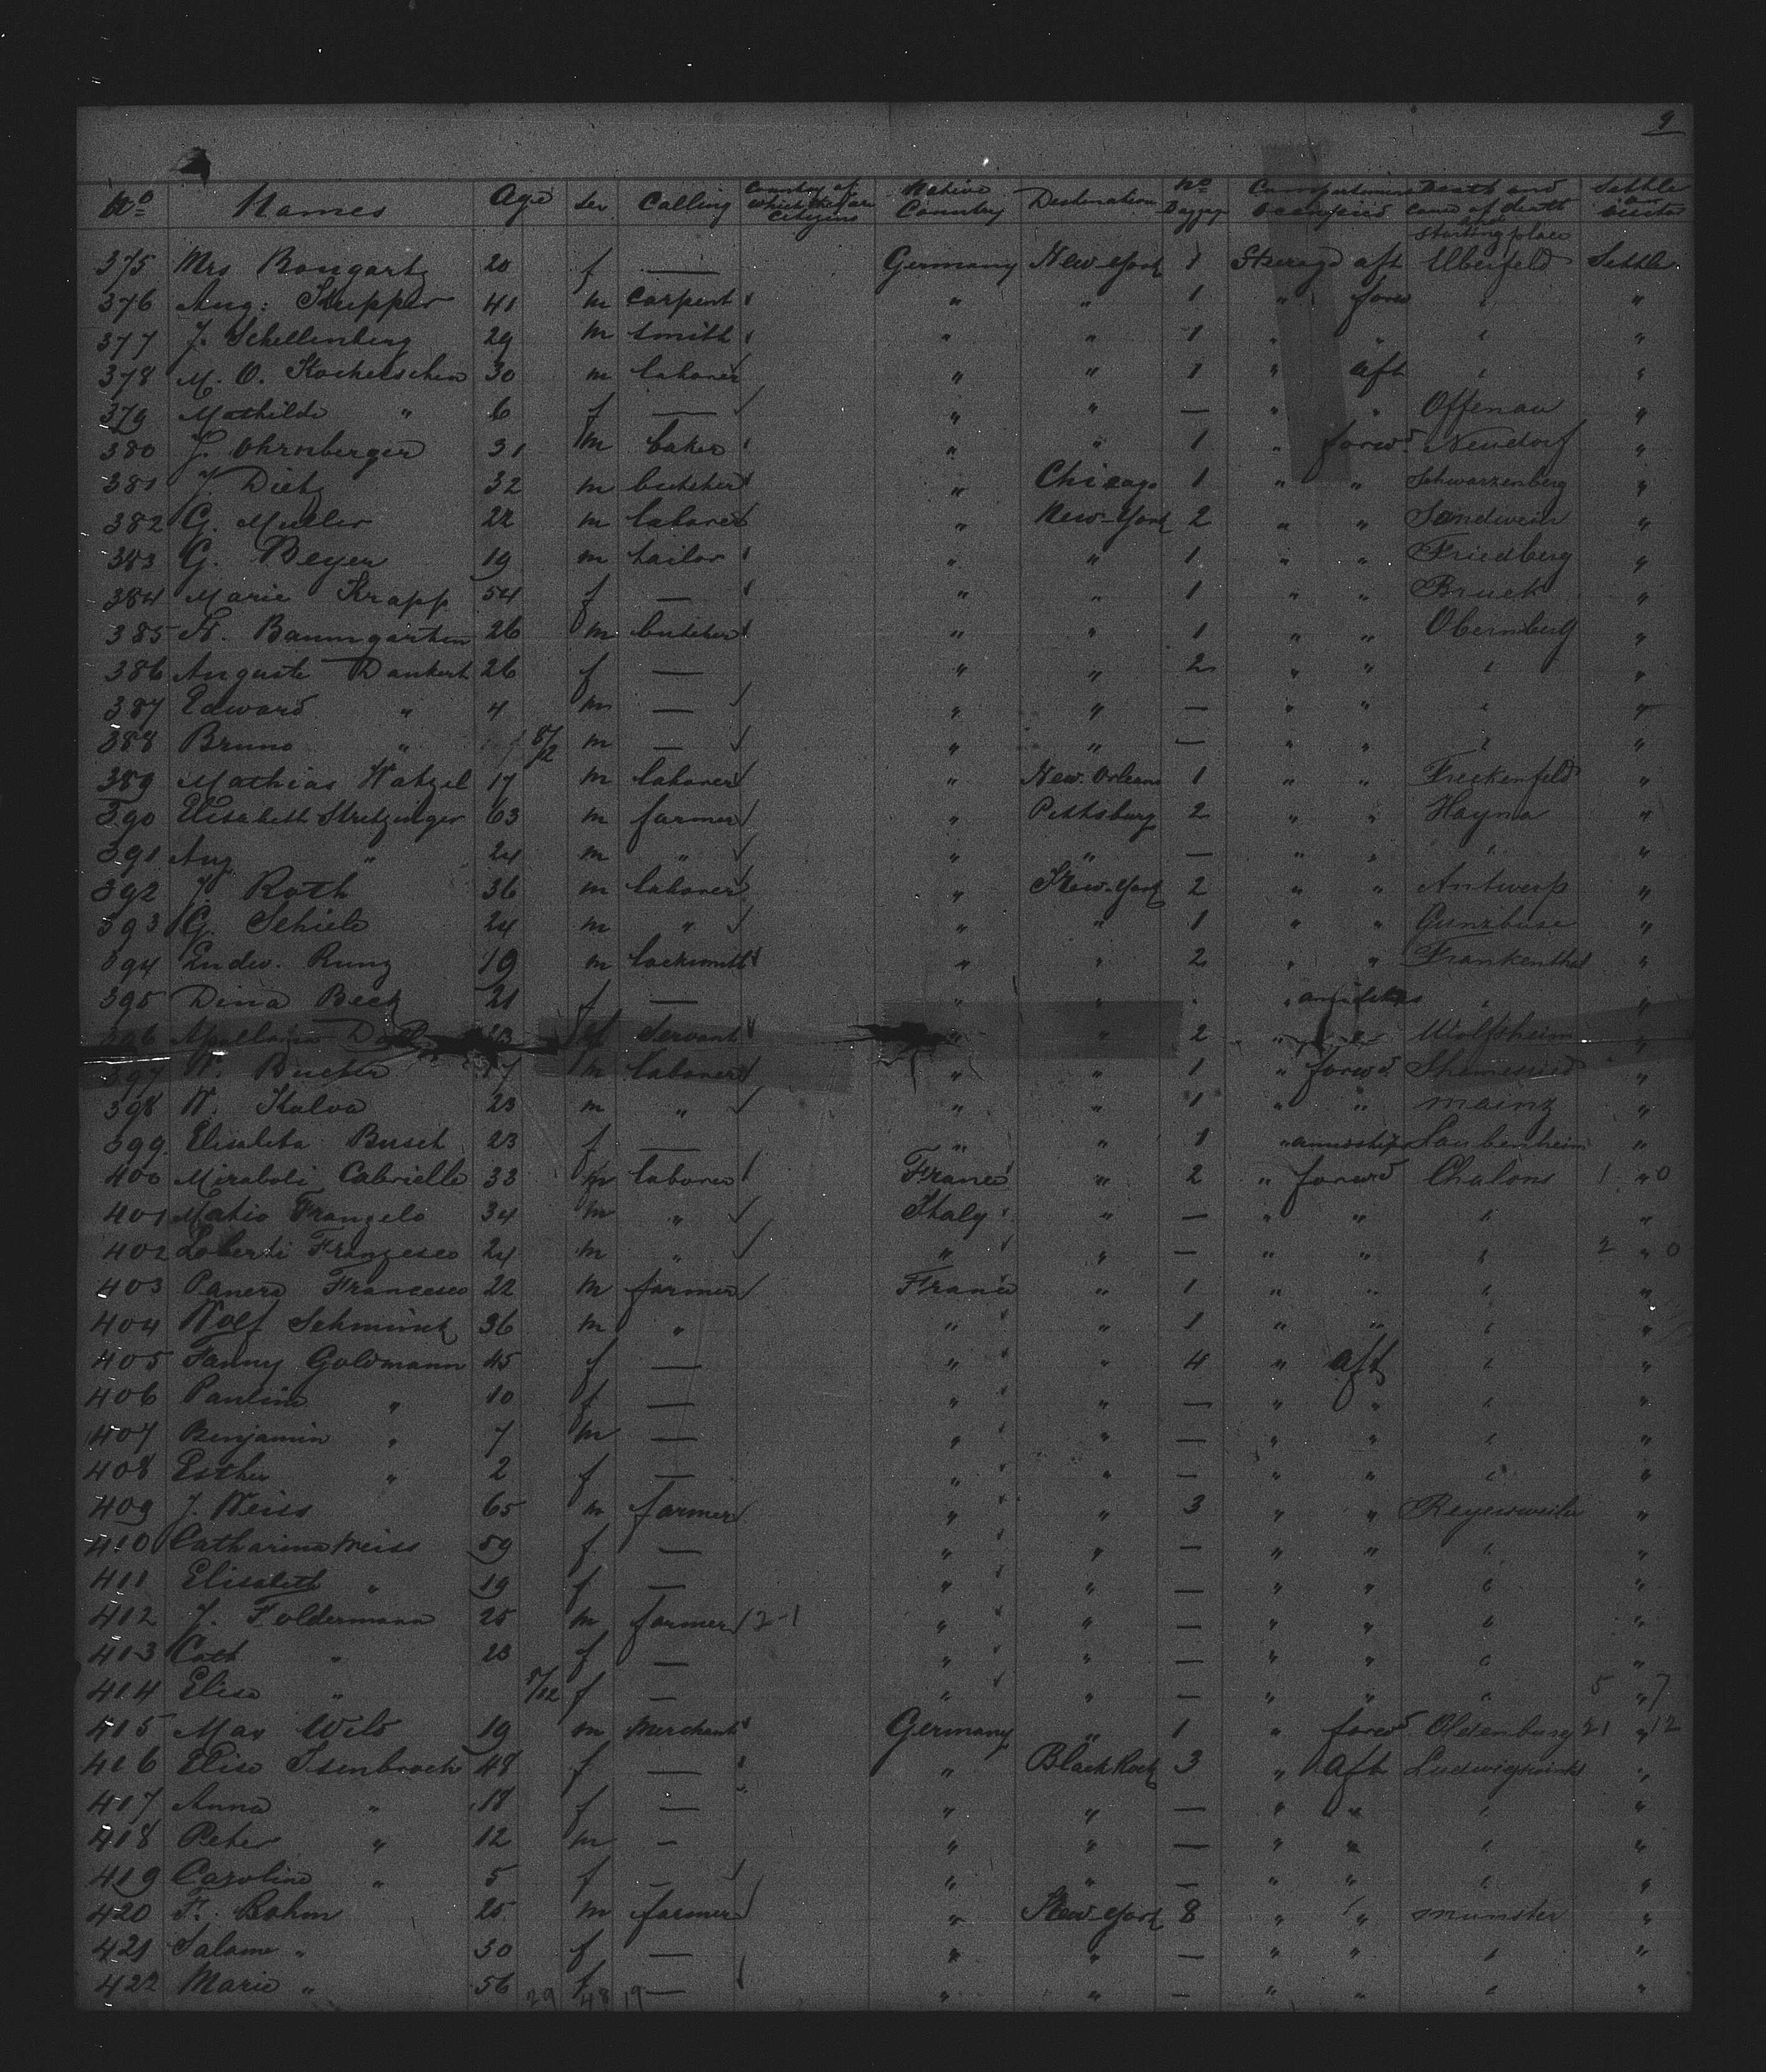 9
No Names Age Sex Calling Country of which they are Citizens Native Country Destination No Baggage Compartment occupied Death and cause of death and starting place Settler or visitor
375 Mrs Bongartz 20 f — Germany New-York 1 Steerage aft Elberfeld Settler
376 Aug: Kupper 41 m carpent " " 1 " forw " "
377 J. Schellenberg 29 m smith " " 1 " " " "
378 M. O. 30 m laborer " " 1 " aft " "
379 Mathilde " 6 f — " " — " " Offenau "
380 J. Ohrnberger 31 m baker " " 1 " forwd Neudorf "
381 J. Dietz 32 m butcher " Chicago 1 " " Schwarzenberg "
382 G. Muller 22 m laborer " New-York 2 " " "
383 G. Beyer 19 m tailor " " 1 " " Friedberg "
384 Marie Krapp 54 f — " " 1 " " Bruck "
385 Baumgarten 26 m butcher " " 1 " " Obernburg "
386 Auguste Dankert 26 f — " " 2 " " " "
387 Edward " 4 m — " " — " " " "
388 Bruno " 8/12 m — " " — " " " "
389 Mathias Watzel 17 m laborer " New-Orleans 1 " " Freckenfeld "
390 Elisabeth Stretzinger 63 m farmer " Pittsburg 2 " " Hayna "
391 Aug " 24 m " " " — " " " "
392 J. Roth 36 m laborer " New-York 2 " " Antwerp "
393 G. Schiele 24 m " " " 1 " " "
394 Ludw. Runz 19 m locksmith " " 2 " " Frankenthal "
395 Dina Beck 21 f — " " " " "
396 f servant " " 2 " " Wolfsheim "
397 m laborer " " 1 " forwd "
398 W. Kalva 23 m " " " 1 " " Mainz "
399 Elisabeta Busch 23 f — " " 1 " amidships Laubenheim "
400 Miraboli Cabrielle 33 m laborer France " 2 " forwd Chalons 1 " 0
401 Matio Frangelo 34 m " Italy " — " " " "
402 Loberti Francesco 24 m " " " — " " " 2 " 0
403 Panera Francesco 22 m farmer France " 1 " " " "
404 Wolf 36 m " " " 1 " " " "
405 Fanny Goldmann 45 f — " " 4 " aft " "
406 Pauline " 10 f — " " — " " " "
407 Benjamin " 7 m — " " — " " " "
408 Esther " 2 f — " " — " " " "
409 J. Weiss 65 m farmer " " 3 " " Reyersweiler "
410 Catharina Weiss 59 f — " " — " " " "
411 Elisabeth " 19 f — " " — " " " "
412 J. Foldermann 25 m farmer 2-1 " " — " " " "
413 Cath " 23 f — " " — " " " "
414 Elise " /12 f — " " — " " " 5 " 7
415 Max Wilo 19 m merchant Germany " 1 " forwd Oldenburg 21 " 12
416 Elise Isenbrock 48 f — " Black Rock 3 " aft Ludwigswinkel "
417 Anna " 18 f — " " — " " " "
418 Peter " 12 m — " " — " " " "
419 Caroline " 5 f — " " — " " " "
420 F. Bohm 25 m farmer " New-York 8 " " Munster "
421 Salame " 30 f — " " — " " " "
422 Marie " 56 f — " " — " " " "
29 48 19